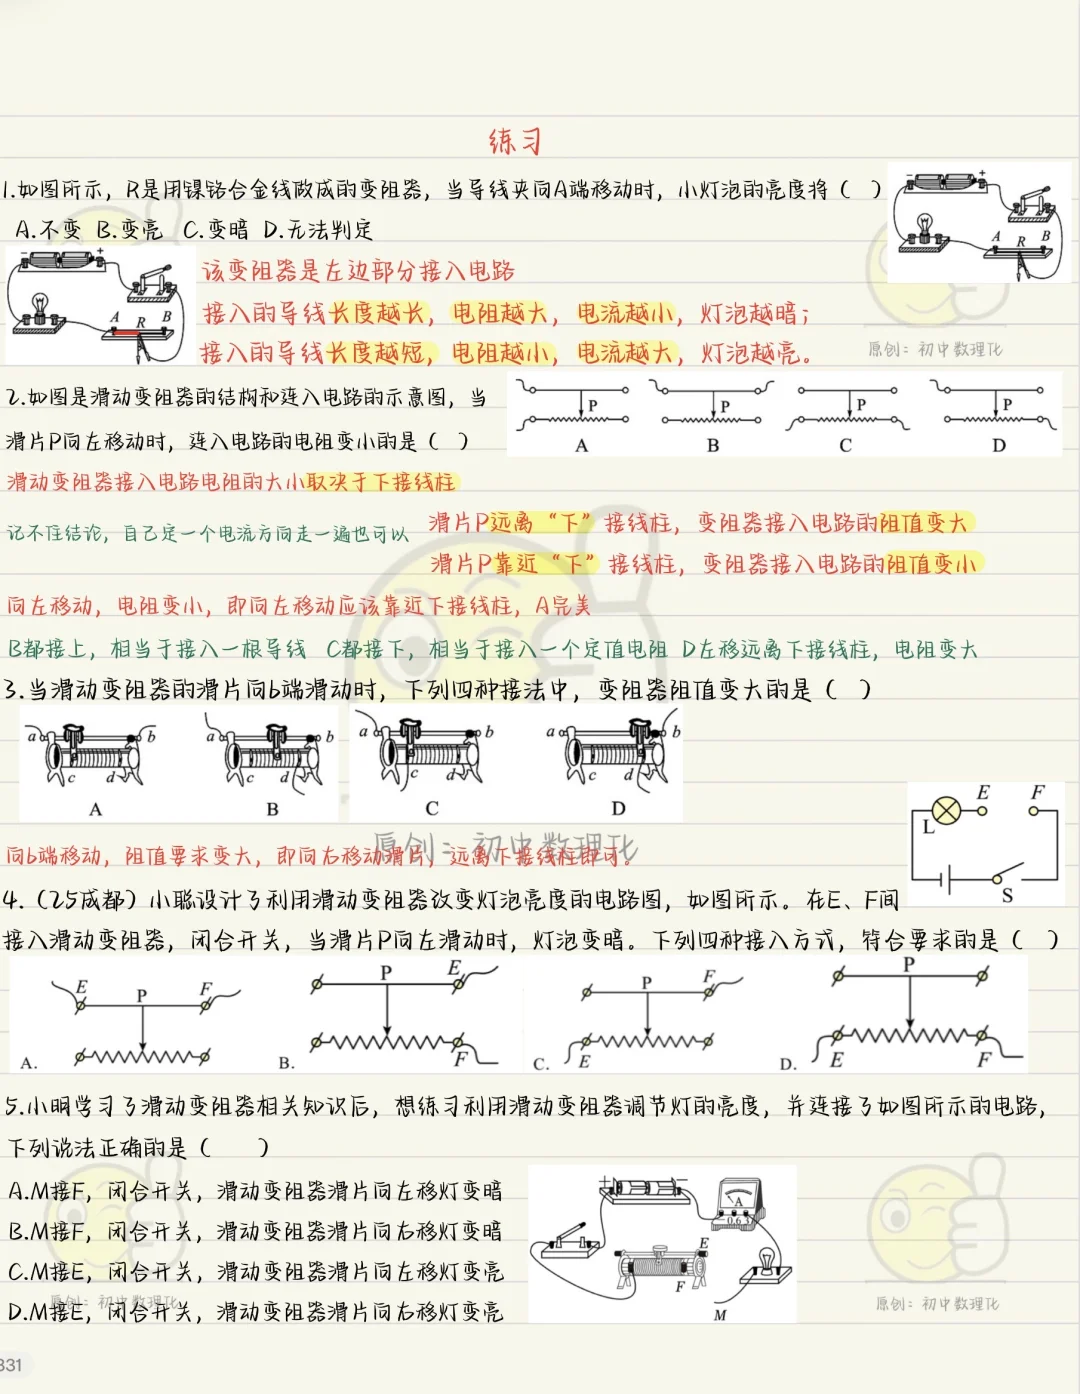 练习
1.如图所示，R是用镍铬合金线做成的变阻器，当导线夹向A端移动时，小灯泡的亮度将（ ）
A.不变 B.变亮 C.变暗 D.无法判定
- +
A R B
- +
A R B
该变阻器是左边部分接入电路
接入的导线长度越长，电阻越大，电流越小，灯泡越暗；
接入的导线长度越短，电阻越小，电流越大，灯泡越亮。
原创：初中数理化
2.如图是滑动变阻器的结构和连入电路的示意图，当
滑片P向左移动时，连入电路的电阻变小的是（ ）
P P P P
A B C D
滑动变阻器接入电路电阻的大小取决于下接线柱
记不住结论，自己定一个电流方向走一遍也可以
滑片P远离“下”接线柱，变阻器接入电路的阻值变大
滑片P靠近“下”接线柱，变阻器接入电路的阻值变小
向左移动，电阻变小，即向左移动应该靠近下接线柱，A完美
B都接上，相当于接入一根导线 C都接下，相当于接入一个定值电阻 D左移远离下接线柱，电阻变大
3.当滑动变阻器的滑片向b端滑动时，下列四种接法中，变阻器阻值变大的是（ ）
a b a b a b a b
c d c d c d c d
A B C D
原创：初中数理化
向b端移动，阻值要求变大，即向右移动滑片，远离下接线柱即可。
E F
L
S
4.（25成都）小聪设计了利用滑动变阻器改变灯泡亮度的电路图，如图所示。在E、F间
接入滑动变阻器，闭合开关，当滑片P向左滑动时，灯泡变暗。下列四种接入方式，符合要求的是（ ）
E P F P E P F P
A. B. F C. E D. E F
5.小明学习了滑动变阻器相关知识后，想练习利用滑动变阻器调节灯的亮度，并连接了如图所示的电路，
下列说法正确的是（ ）
A.M接F，闭合开关，滑动变阻器滑片向左移灯变暗
B.M接F，闭合开关，滑动变阻器滑片向右移灯变暗
C.M接E，闭合开关，滑动变阻器滑片向左移灯变亮
D.M接E，闭合开关，滑动变阻器滑片向右移灯变亮
+ -
A
- 0.6 3
E
F
M
原创：初中数理化
原创：初中数理化
331